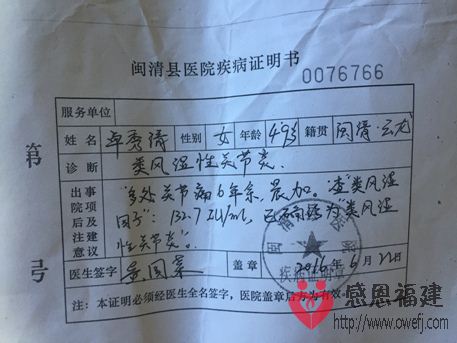 闽清县医院疾病证明书
0076766
服务单位
姓名 卓秀清 性别 女 年龄 49岁 籍贯 闽清·云龙
诊断 类风湿性关节炎.
出院后注意 事项及建议
"多处关节痛6年余,晨加。查"类风湿
因子": 132.7 IU/mL, 已 为"类风湿
性关节炎"。
医生签字 黄国 盖章 2016年6月22日
闽清县医院
疾病证明章
注:本证明必须经医生全名签字,医院盖章后方为有效
第 号
感恩福建
http://www.owefj.com